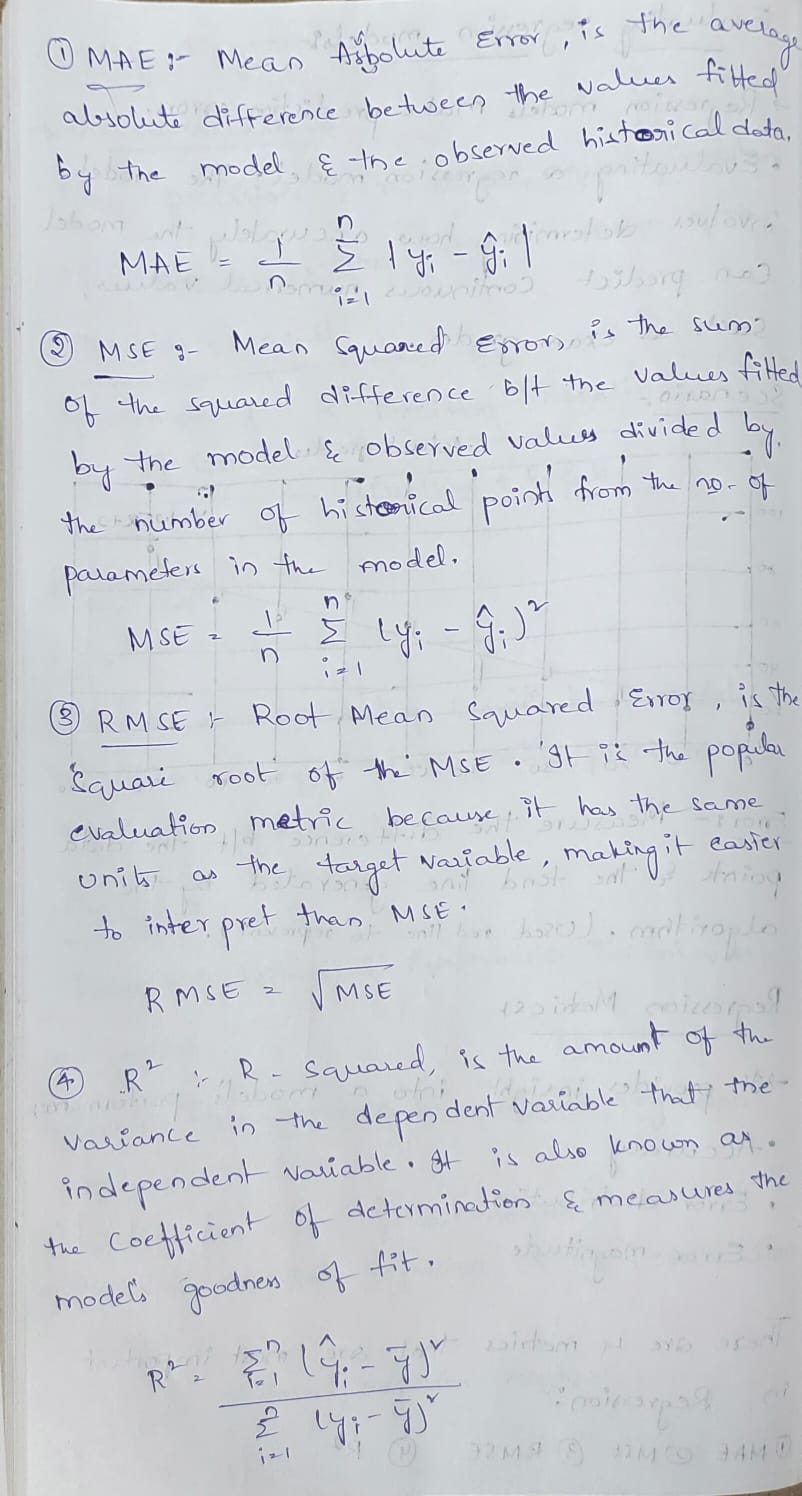 ① MAE :- Mean Absolute Error, is the average
absolute difference between the values fitted
by the model, & the observed historical data.
MAE = 1/n n Σ i=1 |yi - ŷi|
② MSE :- Mean Squared Error, is the sum
of the squared difference b/t the values fitted
by the model & observed values divided by
the number of historical points from the no. of
parameters in the model.
MSE = 1/n n Σ i=1 (yi - ŷi)²
③ RMSE :- Root Mean Squared Error, is the
Square root of the MSE. It is the popular
evaluation metric because, it has the same
units as the target variable, making it easier
to interpret than MSE.
RMSE = √MSE
④ R² :- R - Squared, is the amount of the
variance in the dependent variable that the
independent variable. It is also known as
the coefficient of determination & measures the
model's goodness of fit.
R² = Σ n i=1 (ŷi - ȳ)²
n Σ i=1 (yi - ȳ)²